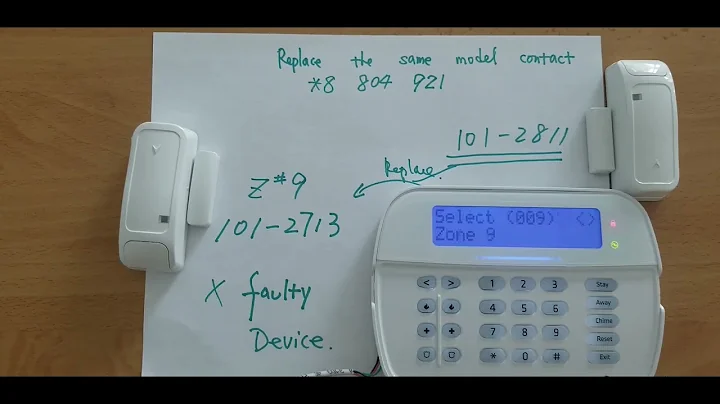 Replace the same model contact
*8 804 921
101-2811
Replace.
Z#9
101-2713
X faulty
Device.
Select (009) <>
Zone 9
< > 1 2 3 Stay
4 5 6 Away
7 8 9 Chime
Reset
* 0 # Exit